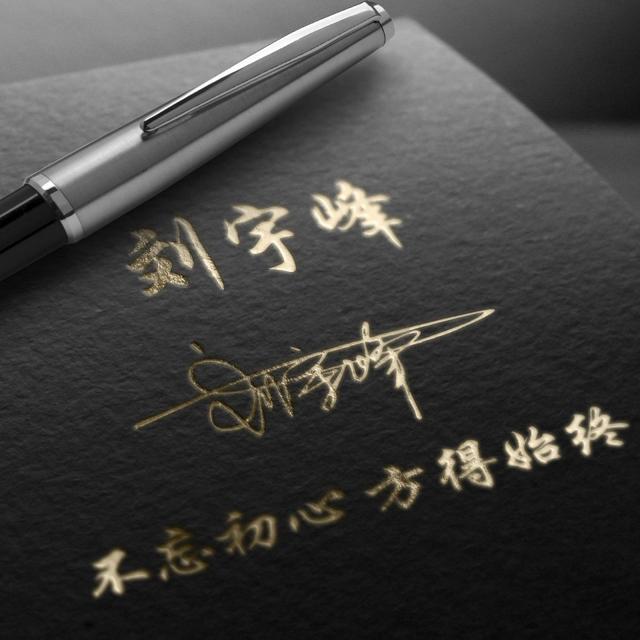 刘宇峰
刘宇峰
不忘初心 方得始终